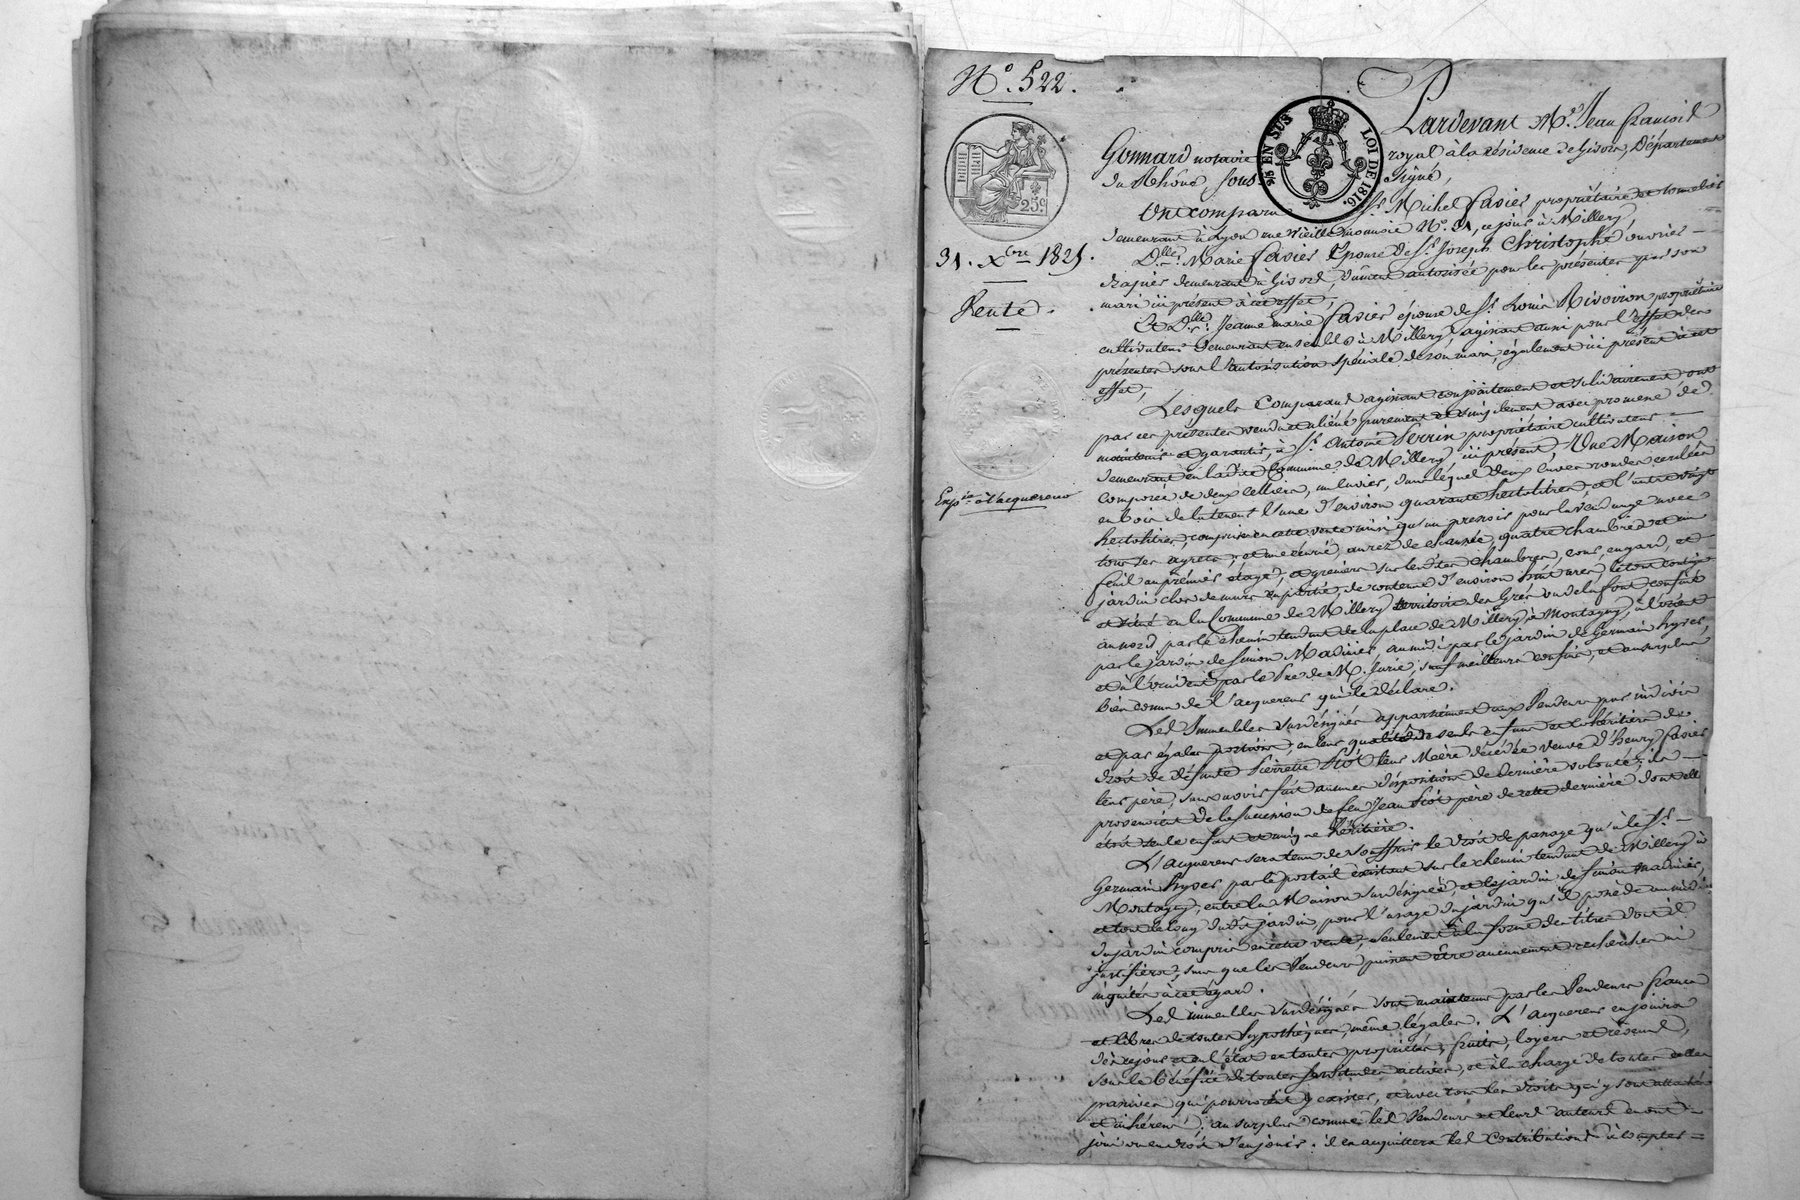 N.° 522.
25.c
2/5 EN SUS LOI DE 1816.
31. Xbre 1825.
Vente.
Exp.on à l'acquereur
Pardevant M.e Jean françois
Gonnard notaire royal à la résidence de Givors, Département
du Rhône, sous signé,
Ont comparu S.r Michel favier propriétaire et
demeurant à Lyon rue vieille monnoie N.°, ce jour à Millery,
D.lle Marie favier Epouse de S.r Joseph Christophe ouvrier
demeurant à Givors, dûment autorisée pour les présentes par son
mari ici présent à cet effet,
Et D.lle Jeanne marie favier épouse de S.r Louis Rivoiron propriétaire
cultivateur demeurant ensemble à Millery, agissant aussi pour l'effet des
présentes sous l'autorisation spéciale de son mari, également ici présent à cet
effet,
Lesquels Comparans agissant conjointement et solidairement ont
par ces présentes vendu et aliéné purement et simplement avec promesse de
maintenir et garantir, à S.r Antoine Perrin propriétaire cultivateur
demeurant en ladite Commune de Millery ici présent, Une Maison
composée de deux celliers, un cuvier, dans lequel deux cuves rondes cerclées
en bois de la teneur l'une d'environ quarante hectolitres et l'autre vingt
hectolitres, comprises en cette vente ainsi qu'un pressoir pour la vendange avec
tous ses agrets, et une écurie, au rez de chaussée, quatre chambres et un
feuil au premier étage, et greniers sur lesdites chambres, cour, et
jardin clos de murs en partie, de contenue d'environ huit ares, le tout contigu
et situé en la Commune de Millery territoire des Grès ou de la font confiné
au nord par le chemin tendant de la place de Millery à Montagny, à l'orient
par le jardin de Simon Madinier, au midi par le jardin de Germain
et à l'occident par le Pré de M. Jurie, sauf meilleurs confins, et au surplus
bien connu de l'acquereur qui le déclare.
Les Immeubles susdésignés appartiennent aux Vendeurs par indivis
et par égales portions, en leur qualité de seuls enfans et héritiers de
droit de défunte Pierrette Piot leur Mère décédée veuve d'henry favier
leur père, sans avoir fait aucunes dispositions de dernière volonté; ils
provenoient de la succession de feu Jean Piot père de cette dernière dont elle
étoit seule enfant et unique héritière.
L'acquereur sera tenu de souffrir le droit de passage qu'a le S.r
Germain par le portail existant sur le chemin tendant de Millery à
Montagny, entre la Maison susdésignée, et le jardin de Simon Madinier,
et tout le long dudit jardin pour l'usage du jardin qu'il possède au midi
du jardin compris en cette vente, seulement à la forme des titres dont il
justifiera, sans que les Vendeurs puissent être aucunement recherchés ni
inquiétés à cet égard.
Les immeubles susdésignés sont maintenus par les Vendeurs francs
et libres de toutes hypothèques, même légales. L'acquereur en jouira
dès ce jour et en l'état en toutes propriétés, fruits, loyers et revenus,
sous le bénéfice de toutes servitudes actives, et à la charge de toutes celles
passives qui pourroient y exister, et avec tous les droits qui y sont attachés
et inhérens; au surplus comme les Vendeurs et leurs auteurs en ont
joui ou eu droit d'en jouir. il en acquittera les contributions à compter